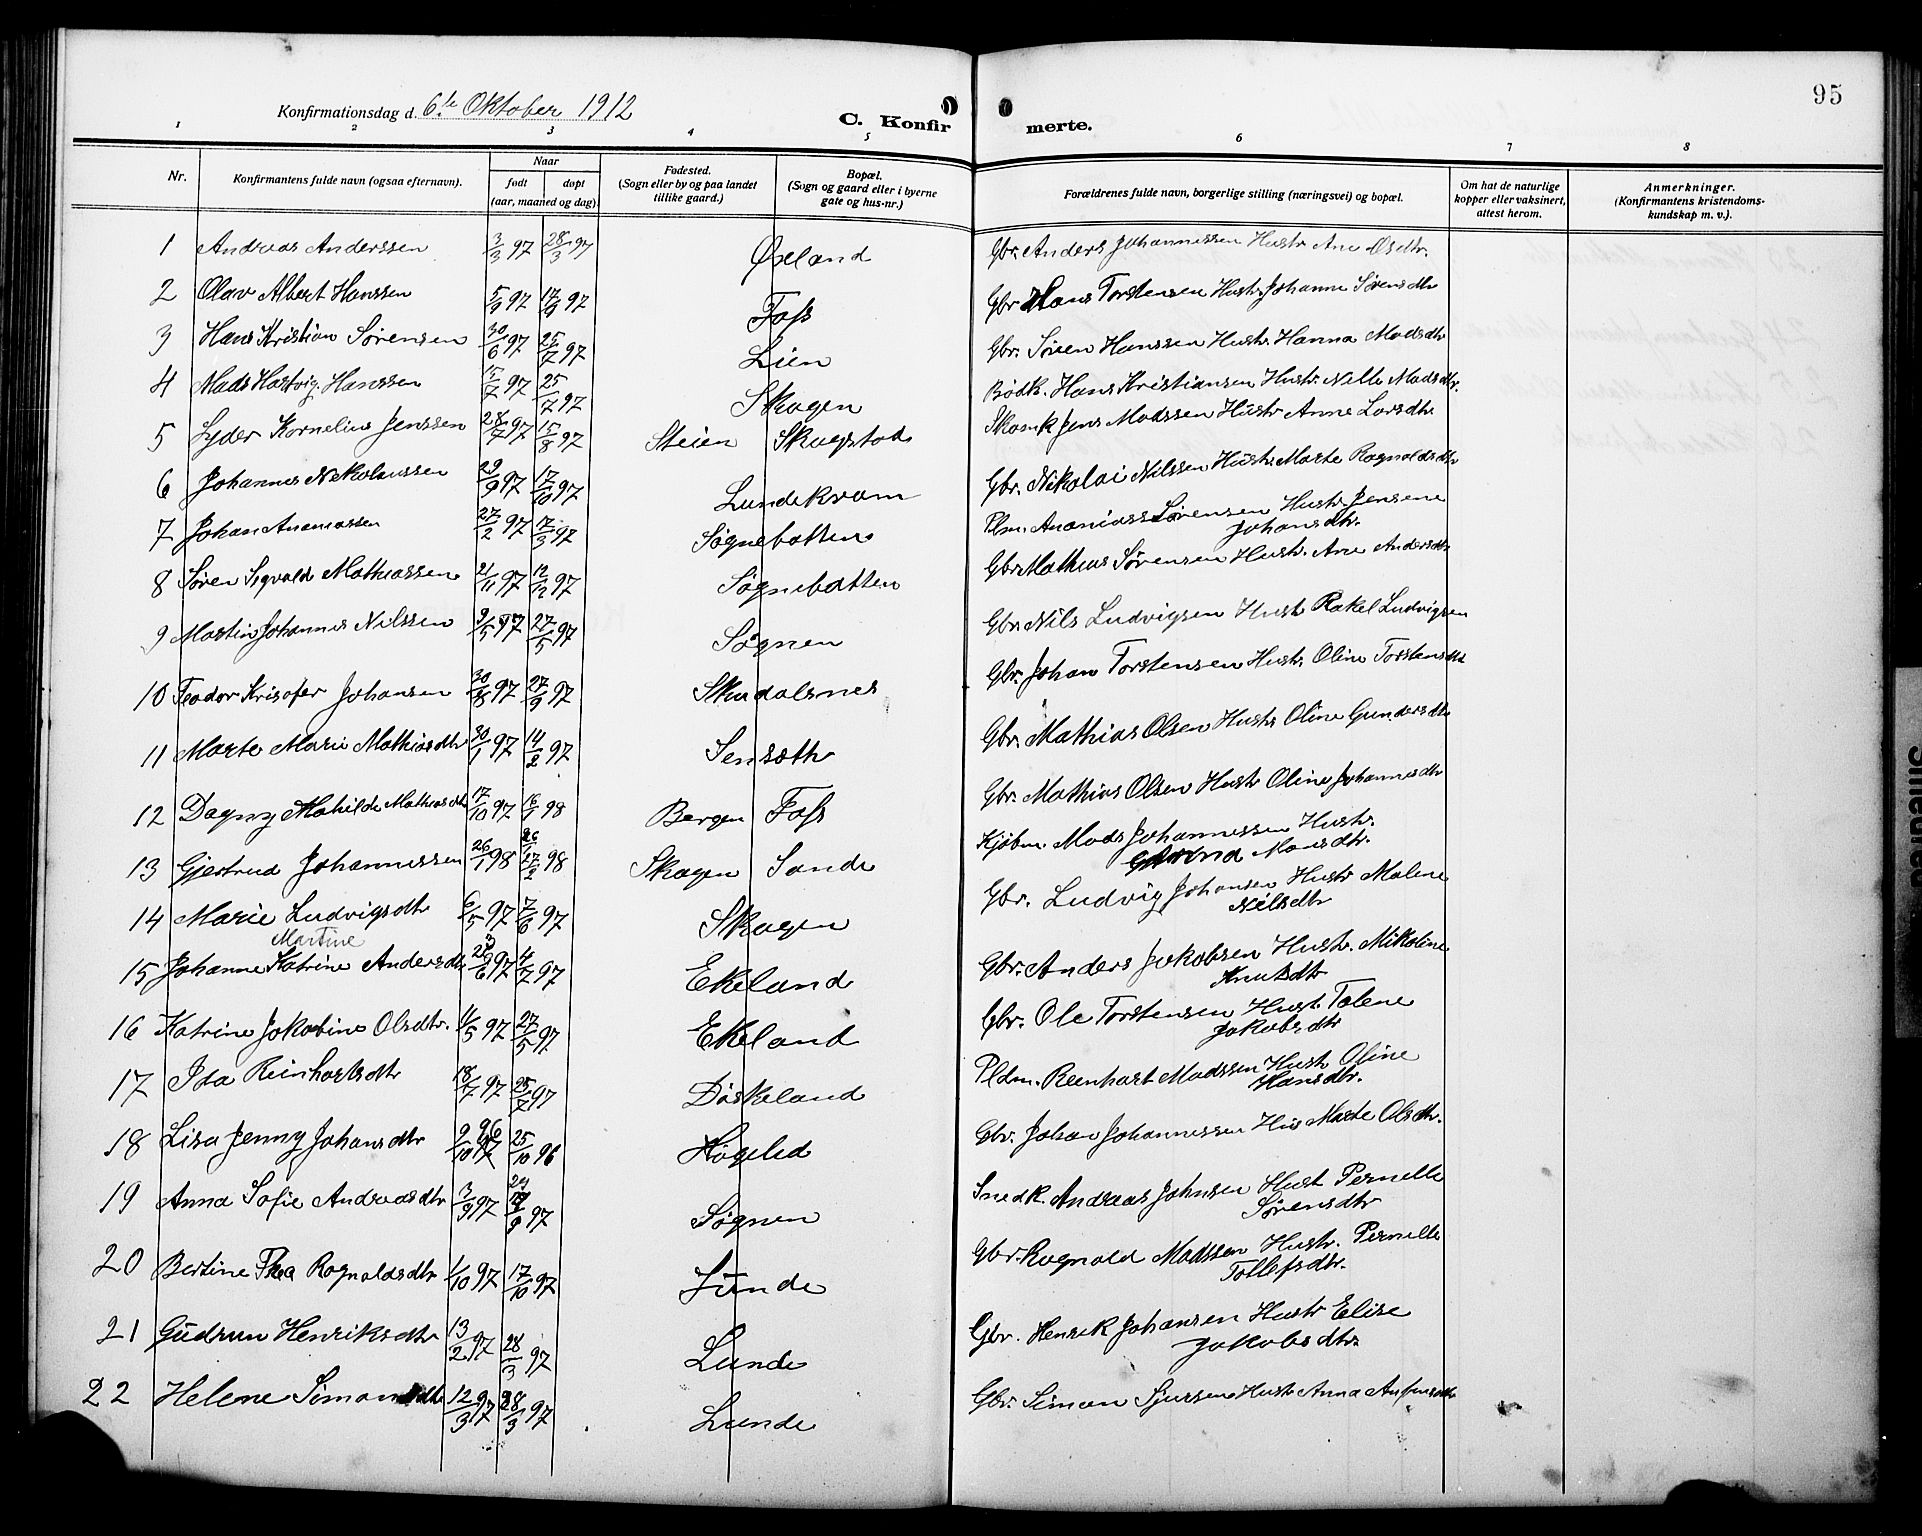 95
Konfirmationsdag d. 6te Oktober 1912
C. Konfirmerte.
1 2 3 4 5 6 7 8
Nr.
Konfirmantens fulde navn (ogsaa efternavn).
Naar
født døpt
(aar, maaned og dag).
Fødested.
(Sogn eller by og paa landet
tillike gaard.)
Bopæl.
(Sogn og gaard eller i byerne
gate og hus-nr.)
Forældrenes fulde navn, borgerlige stilling (næringsvei) og bopæl.
Om hat de naturlige
kopper eller vaksinert,
attest herom.
Anmerkninger.
(Konfirmantens kristendoms-
kundskap m. v.).
1 Andreas Anderssen 3/3 97 28/3 97 Øxland Gbr. Anders Johannessen Hustr Ane Olsdtr.
2 Olav Albert Hanssen 5/9 97 17/9 97 Foss Gbr Hans Torstensen Hustr. Johanne Sørensdtr
3 Hans Kristian Sørensen 30/6 97 25/7 97 Lien Gbr. Søren Hanssen Hustr. Hanna Madsdtr
4 Mads Hartvig Hanssen 15/7 97 25/7 97 Skogen Bødk. Hans Kristiansen Hustr. Nille Madsdtr.
5 Lyder Kornelius Jenssen 28/7 97 15/8 97 Steien Skogstad Skomk Jens Madssen Hustr Anne Larsdtr
6 Johannes Nikolaissen 29/9 97 17/10 97 Lundekvam Gbr. Nikolai Nilssen Hustr. Marte Ragnoldsdtr
7 Johan Ananiassen 27/2 97 17/3 97 Søgnebotten Plm. Ananias Sørensen Hustr. Jensene
Johansdtr.
8 Søren Sigvald Mathiassen 21/11 97 12/12 97 Søgnebotten Gbr Mathias Sørensen Hustr. Ane Andersdtr
9 Martin Johannes Nilssen 9/5 97 27/5 97 Søgnen Gbr. Nils Ludvigsen Hustr Rakel Ludvigsen
10 Teodor Krisofer Johansen 30/8 97 27/9 97 Skudalsnes Gbr. Johan Torstensen Hustr. Oline Torstensdtr
11 Marte Marie Mathiasdtr 30/1 97 14/2 97 Sensæth Gbr. Mathias Olsen Hustr Oline Gundersdtr
12 Dagny Mathilde Mathiasdtr 17/10 97 16/1 98 Bergen Foss Gbr. Mathias Olsen Hustr Oline Johannesdtr
13 Gjertrud Johannessen 26/1 98 27/2 98 Skogen Sande Kjøbm. Mads Johannessen Hustr.
Monsdtr.
14 Marie Ludvigsdtr 6/5 97 7/6 97 Skogen Gbr. Ludvig Johansen Hustr Malene
Nilsdtr
Martine
15 Johanne Katrine Andersdtr 6 97 4/7 97 Ekeland Gbr. Anders Jakobsen Hustr. Mikoline
Knutsdtr
16 Katrine Jokobine Olsdtr. 4/5 97 27/5 97 Ekeland Gbr. Ole Torstensen Hustr. Talene
Jakobsdtr
17 Ida Reinhartsdtr 18/7 97 25/7 97 Døskeland Pldm. Reenhart Madssen Hustr Oline
Hansdtr.
18 Lisa Jenny Johansdtr 9/10 96 25/10 96 Høgelid Gbr. Johan Johannessen Hus Marte Olsdtr.
19 Anna Sofie Andreasdtr 3/9 97 9 97 Søgnen Snedk. Andreas Johnsen Hust Pernelle
Sørensdtr
20 Bertine Thea Ragnoldsdtr 1/10 97 17/10 97 Lunde Gbr. Ragnold Madssen Hustr. Pernelle
Tollefsdtr.
21 Gudrun Henriksdtr 13/2 97 28/3 97 Lunde Gbr. Henrik Johansen Hustr Elise
Jakobsdtr.
22 Helene Simonsdtr 12/3 97 28/3 97 Lunde Gbr. Simon Sjurssen Hustr Anna